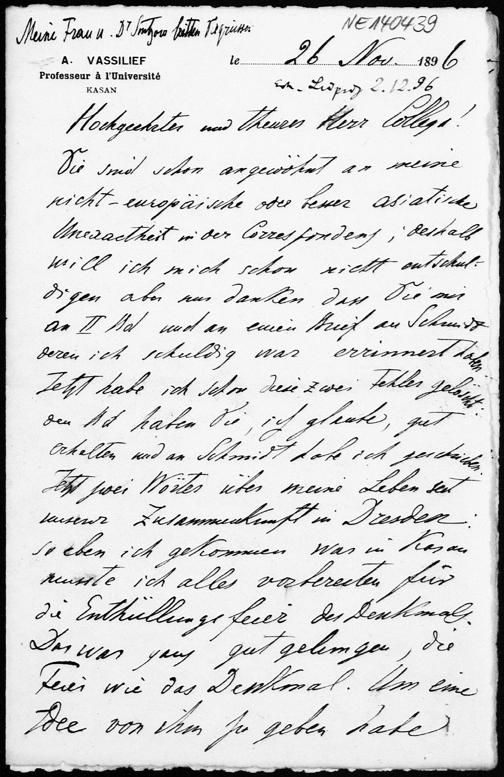 Meine Frau u. Dr bitten Sie grüssen
NE140439
A. VASSILIEF
Professeur à l'Université
KASAN
le 26 Nov. 1896
Leipzig 2.12.96
Hochgeehrter und theurer Herr College!
Sie sind schon angewöhnt an meine
nicht-europäische oder besser asiatische
Unexactheit in der Correspondenz; deshalb
will ich mich schon nicht entschul-
digen aber nur danken dass Sie mir
an II Bd und an einen Brief an Schmidt
deren ich schuldig war errinnert haben
Jetzt habe ich schon diese zwei Fehler gelöscht:
den Bd haben Sie, ich glaube, gut
erhalten und an Schmidt habe ich geschrieben.
Jetzt zwei Wörter über meine Leben seit
unserer Zusammenkunft in Dresden:
so eben ich gekommen war in Kasan
musste ich alles vorbereiten für
die Enthüllungsfeier des Denkmals.
Das war ganz gut gelungen, die
Feier wie das Denkmal. Um eine
Idee von ihm zu geben habe